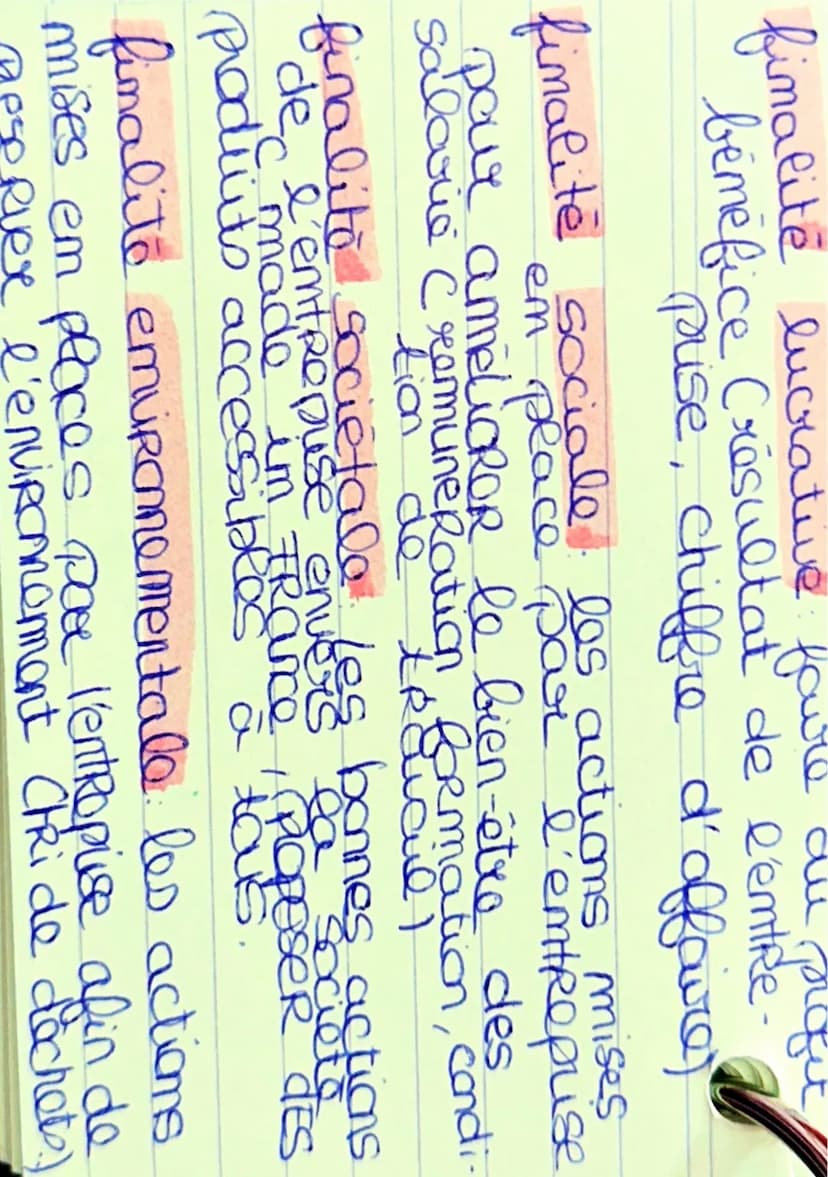 finalité lucrative : faire du profit
bénéfice (résultat de l'entre-
prise, chiffre d'affaire)
finalité sociale : les actions mises
en place par l'entreprise
pour améliorer le bien-être des
salarié (remuneration, formation, condi-
tion de travail)
finalité sociétale : les bonnes actions
de l'entreprise envers sa société
(made in France, proposer des
produits accessibles à tous.
finalité environnementale : les actions
mises en places par l'entreprise afin de
preserver l'environnement (tri de déchets)